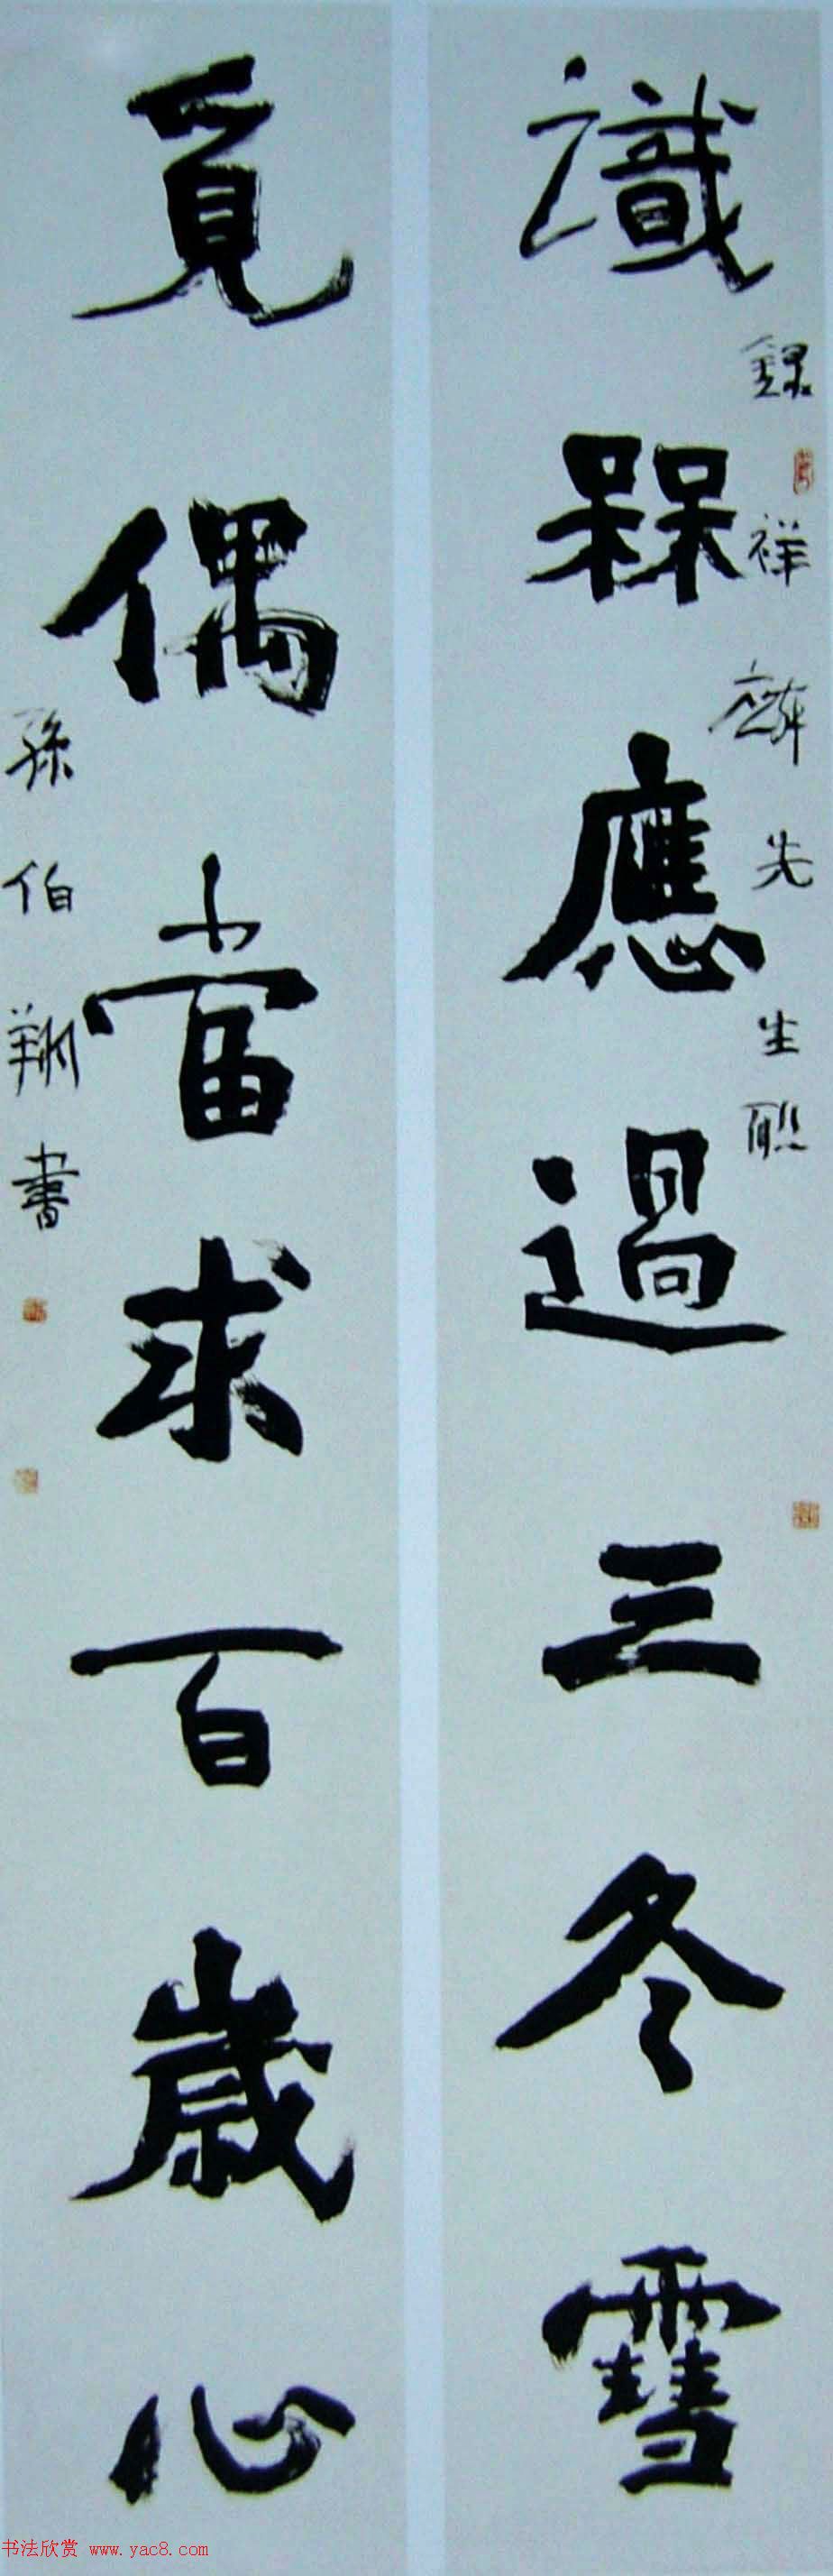 識槑應過三冬雪
錄祥麟先生聯
覓偶當求百歲心
孫伯翔書
书法欣赏 www.yac8.com